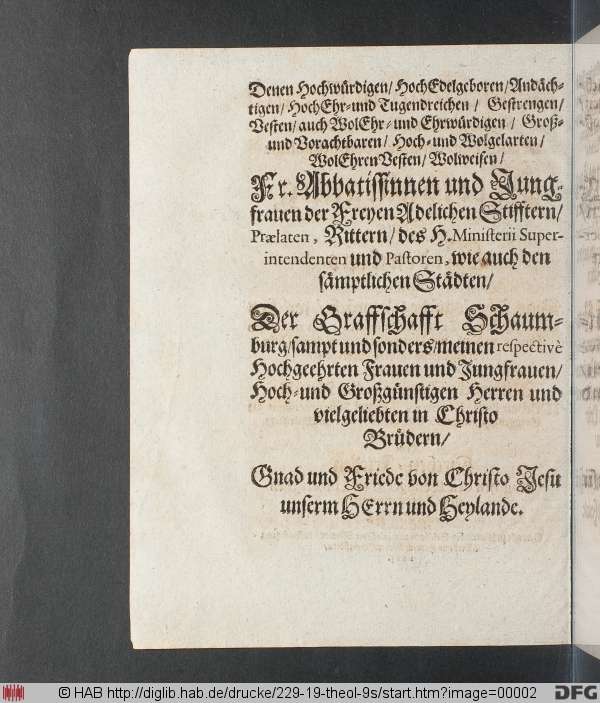 Denen Hochwürdigen/ HochEdelgeboren/ Andäch-
tigen/ HochEhr- und Tugendreichen / Gestrengen/
Vesten/ auch WolEhr- und Ehrwürdigen / Groß-
und Vorachtbaren/ Hoch- und Wolgelarten/
WolEhrenVesten/ Wolweisen/
Fr. Abbatissinnen und Jung-
frauen der Freyen Adelichen Stifftern/
Prælaten, Rittern/ des H. Ministerii Super-
intendenten und Pastoren, wie auch den
sämptlichen Städten/
Der Graffschafft Schaum-
burg/ sampt und sonders/ meinen respectivè
Hochgeehrten Frauen und Jungfrauen/
Hoch- und Großgünstigen Herren und
vielgeliebten in Christo
Brüdern/
Gnad und Friede von Christo Jesu
unserm HErrn und Heylande.
© HAB http://diglib.hab.de/drucke/229-19-theol-9s/start.htm?image=00002
DFG